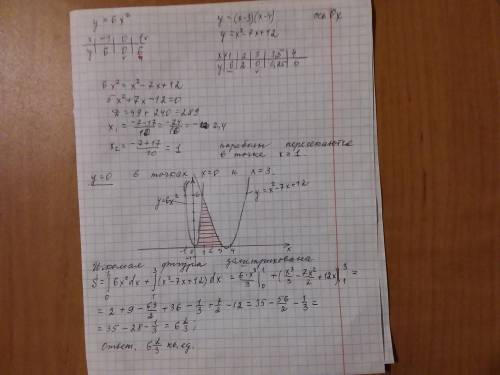 y = 6x²
y = (x-3)(x-4)
ось Ox
y = x²-7x+12
x | -1 | 0 | 1
y | 6 | 0 | 6
x | 1 | 2 | 3 | 3,5 | 4
y | 6 | 2 | 0 | | 0
6x² = x²-7x+12
5x²+7x-12=0
D = 49+240 = 289
x₁ = (-7-17)/10 = -24/10 = -2,4
x₂ = (-7+17)/10 = 1
параболы пересекаются
в точке x = 1
y=0 в точках x=0 и x=3.
y=6x²
y=x²-7x+12
-1 0 1 2 3 4 x
Искомая фигура заштрихована
S = ∫₀¹ 6x²dx + ∫₁³ (x²-7x+12)dx = 6·x³/3 |₀¹ + (x³/3 - 7x²/2 + 12x)|₁³ =
= 2 + 9 - 63/2 + 36 - 1/3 + 7/2 - 12 = 35 - 56/2 - 1/3 =
= 35 - 28 - 1/3 = 6 2/3;
Ответ. 6 2/3 кв. ед.